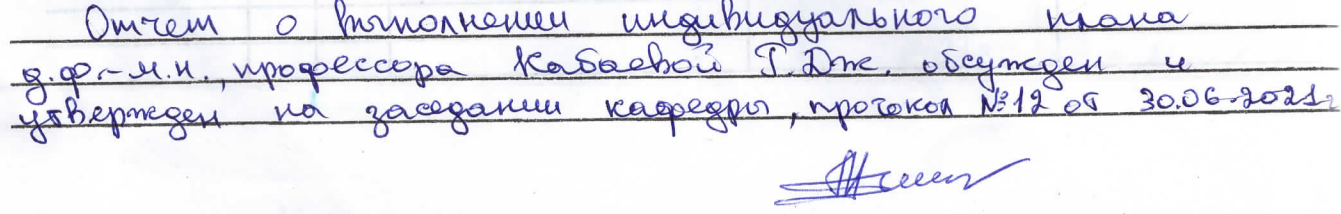 Отчет о выполнении индивидуального плана
д.ф.-м.н., профессора Кабаевой Г.Дж. обсужден и
утвержден на заседании кафедры, протокол №12 от 30.06.2021г